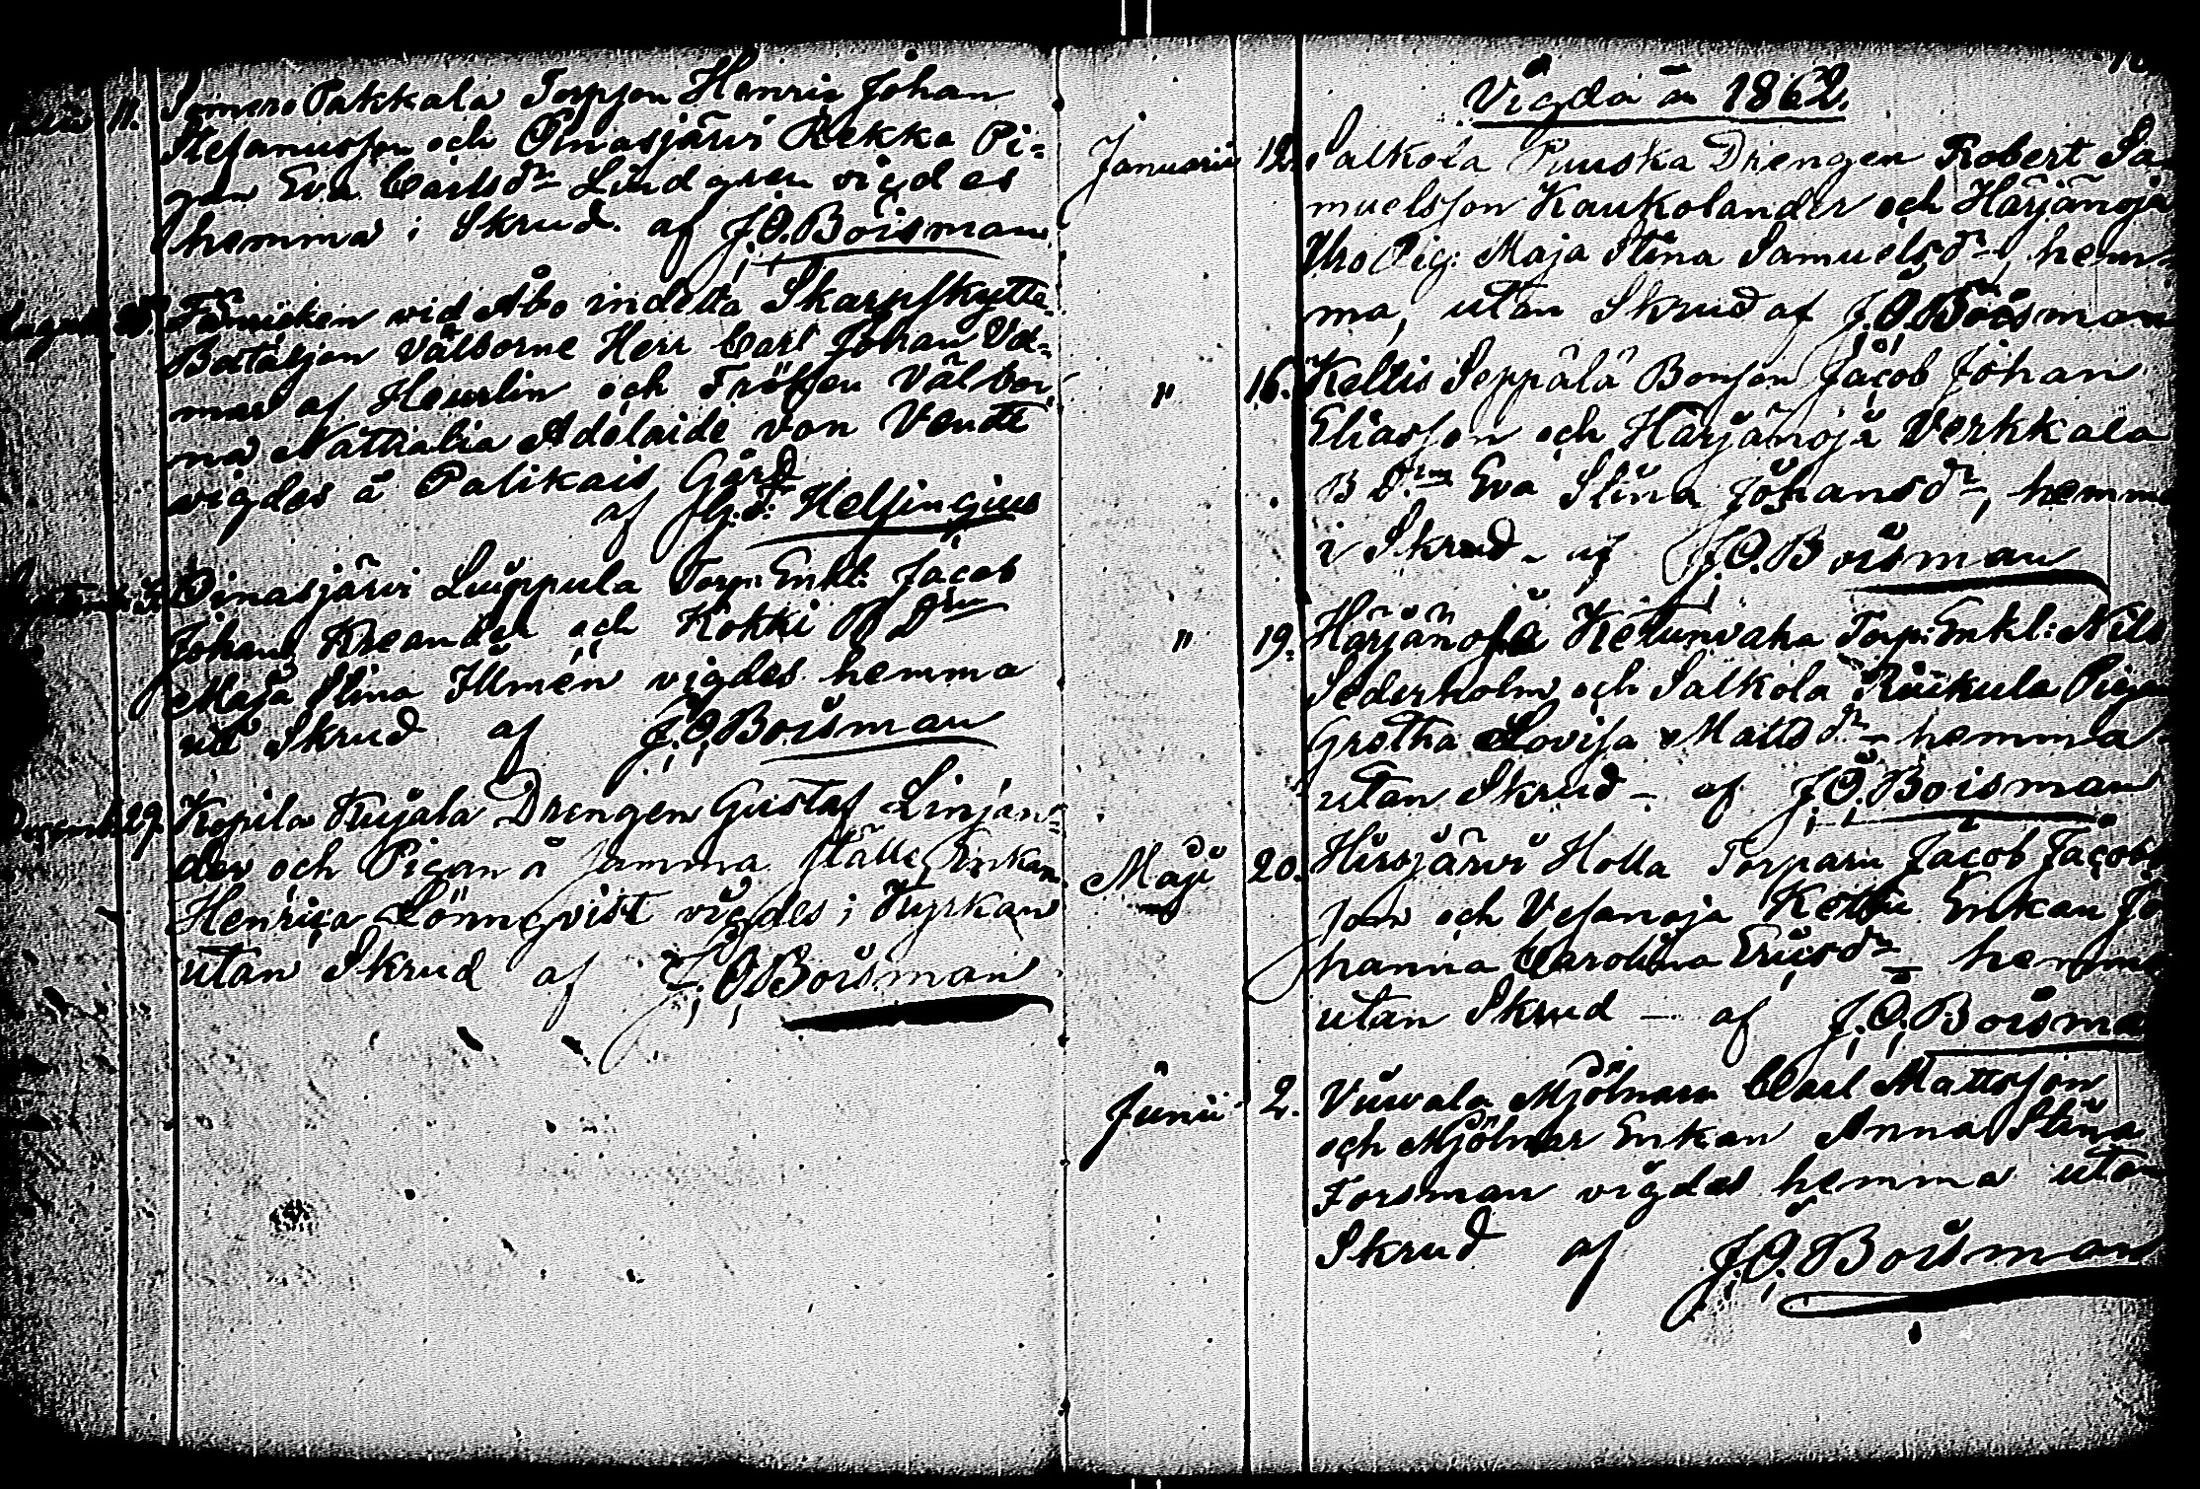 11. Somero Pakkala Torpson Henric Johan
Stefanusson och Oinasjärvi Rekka Pi=
gan Eva Carlsdr Lindgren vigdes
hemma i Skrud af J.O. Boisman
Fänriken vid Åbo indelta Skarpskytte
Bataljon Välborne Herr Carl Johan Vol=
mar af Heurlin och Fröken Välbor=
na Nathalia Adelaide von Vendt
vigdes å Palikais Gård
af Helsingius
Oinasjärvi Luppula Torp: Enkl: Jacob
Johan Kreander och Kokki B Drn
Maja Stina Ilmén vigdes hemma
ut Skrud af J.O. Boisman
Decemb 29. Kopila Kujala Drengen Gustaf Linjan=
der och Pigan å samma ställe Enkan
Henrica Lönnqvist vigdes i Kyrkan
utan Skrud af J.O. Boisman
Vigda år 1862.
Januarii 12. Salkola Puuska Drengen Robert Sa
muelsson Kaukolander och Härjänoja
Uro Pig: Maja Stina Samuelsdr hem=
ma, utan Skrud af J.O. Boisman
" 16. Keltis Seppälä Bonson Jacob Johan
Eliasson och Härjänoja Verkkala
B Drn Eva Stina Johansdr, hemma
i Skrud - af J.O. Boisman
" 19. Härjänoja Ketunvaha Torp: Enkl: Nils
Sederholm och Salkola Riikula Pigan
Gretha Lovisa Mattsdr - hemma
utan Skrud - af J.O. Boisman
Maji 20. Hirsjärvi Holla Torparn Jacob Jacobs
son och Vesanoja Enkan Jo
hanna Carolina Ericsdr - hemma
utan Skrud - af J.O. Boisma
Junii 2. Viuvala Mjölnarn Carl Mattsson
och Mjölnar Enkan Anna Stina
Forsman vigdes hemma utan
Skrud af J.O. Boisman